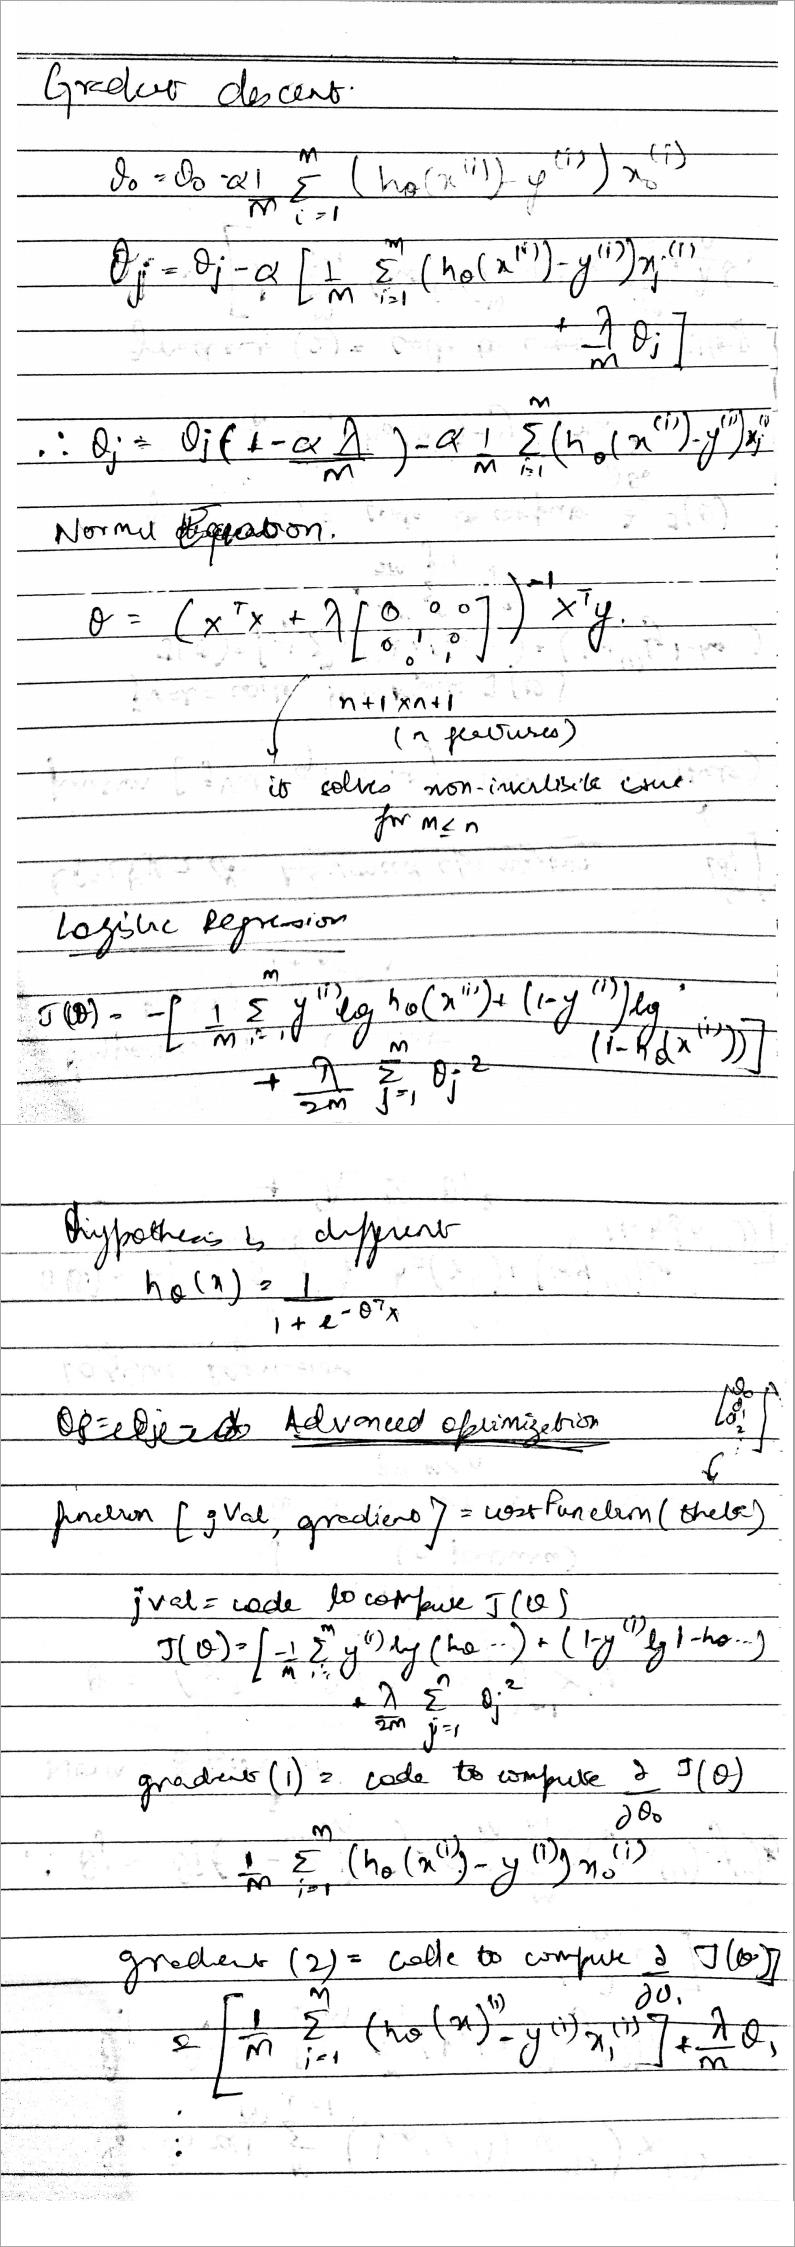 Gradient descent.
θ₀ = θ₀ - α 1/m Σ_{i=1}^{m} (h_θ(x^{(i)}) - y^{(i)}) x₀^{(i)}
θ_j = θ_j - α [ 1/m Σ_{i=1}^{m} (h_θ(x^{(i)}) - y^{(i)}) x_j^{(i)}
+ λ/m θ_j ]
∴ θ_j = θ_j ( 1 - α λ/m ) - α 1/m Σ_{i=1}^{m} (h_θ(x^{(i)}) - y^{(i)}) x_j^{(i)}
Normal Equation.
θ = ( x^T x + λ [ 0 0 0
0 1 0
0 1 ] )^{-1} x^T y.
n+1 x n+1
(n features)
it solves non-invertible issue.
for m ≤ n
Logistic Regression
J(θ) = - [ 1/m Σ_{i=1}^{m} y^{(i)} log h_θ(x^{(i)}) + (1-y^{(i)}) log
(1-h_θ(x^{(i)})) ]
+ λ/2m Σ_{j=1}^{n} θ_j^2
hypothesis is different
h_θ(x) = 1 / 1 + e^{-θ^T x}
Advanced optimization
[ θ₀ θ₁ θ₂ : ]
function [jVal, gradient] = costFunction(theta)
jval = code to compute J(θ)
J(θ) = [ -1/m Σ_{i=1}^{m} y^{(i)} log (h_θ ...) + (1-y^{(i)} log 1-h_θ ...)
+ λ/2m Σ_{j=1}^{n} θ_j^2
gradient (1) = code to compute ∂/∂θ₀ J(θ)
1/m Σ_{i=1}^{m} (h_θ(x^{(i)}) - y^{(i)}) x₀^{(i)}
gradient (2) = code to compute ∂/∂θ₁ J(θ)]
= [ 1/m Σ_{i=1}^{m} (h_θ(x)^{(i)} - y^{(i)} x₁^{(i)} ] + λ/m θ₁
: